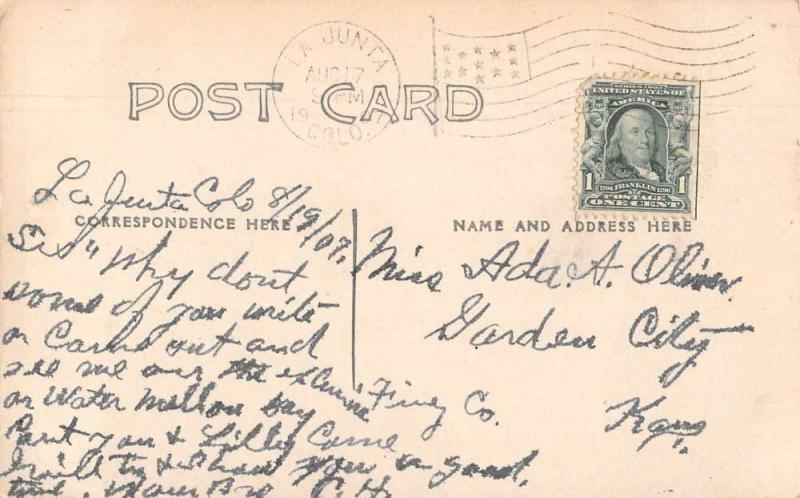 POST CARD
LA JUNTA
AUG 17
PM
19 7
COLO.
SERIES 1902
UNITED STATES OF
AMERICA
1 1
1706 FRANKLIN 1790
POSTAGE
ONE CENT
CORRESPONDENCE HERE
NAME AND ADDRESS HERE
La Junta Colo 8/19/07.
Sis" Why dont
some of you write
or Come out and
see me over the
or Water Mellon Day
Cant you & Lilly Come
I will try & Show you a good
time. Your Bro C. H.
Miss Ada. A. Oliver.
Garden City
Finey Co. Kans.